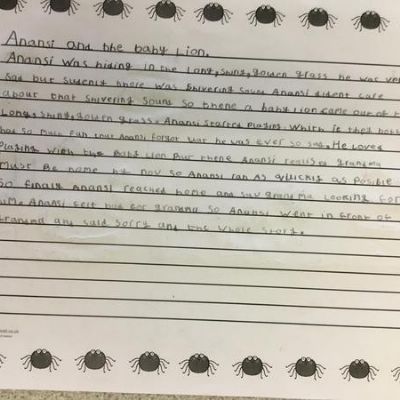 Anansi and the baby Lion.
Anansi was hiding in the long, shiny, golden grass he was very
sad but sudenly there was shivering sound Anansi dident care
about that shivering sound so thene a baby lion came out of the
long, shiny, golden grass. Anansi started playing with it they both
had so much fun that Anansi forgot that he was ever so sad. He loved
playing with the baby lion but thene Anansi realised grandma
must be home by now so Anansi ran as quickly as posible
so finaly Anansi reached home and saw grandma looking for
him. Anansi felt bad for grandma so Anansi went in front of
grandma and said sorry and the whole story.